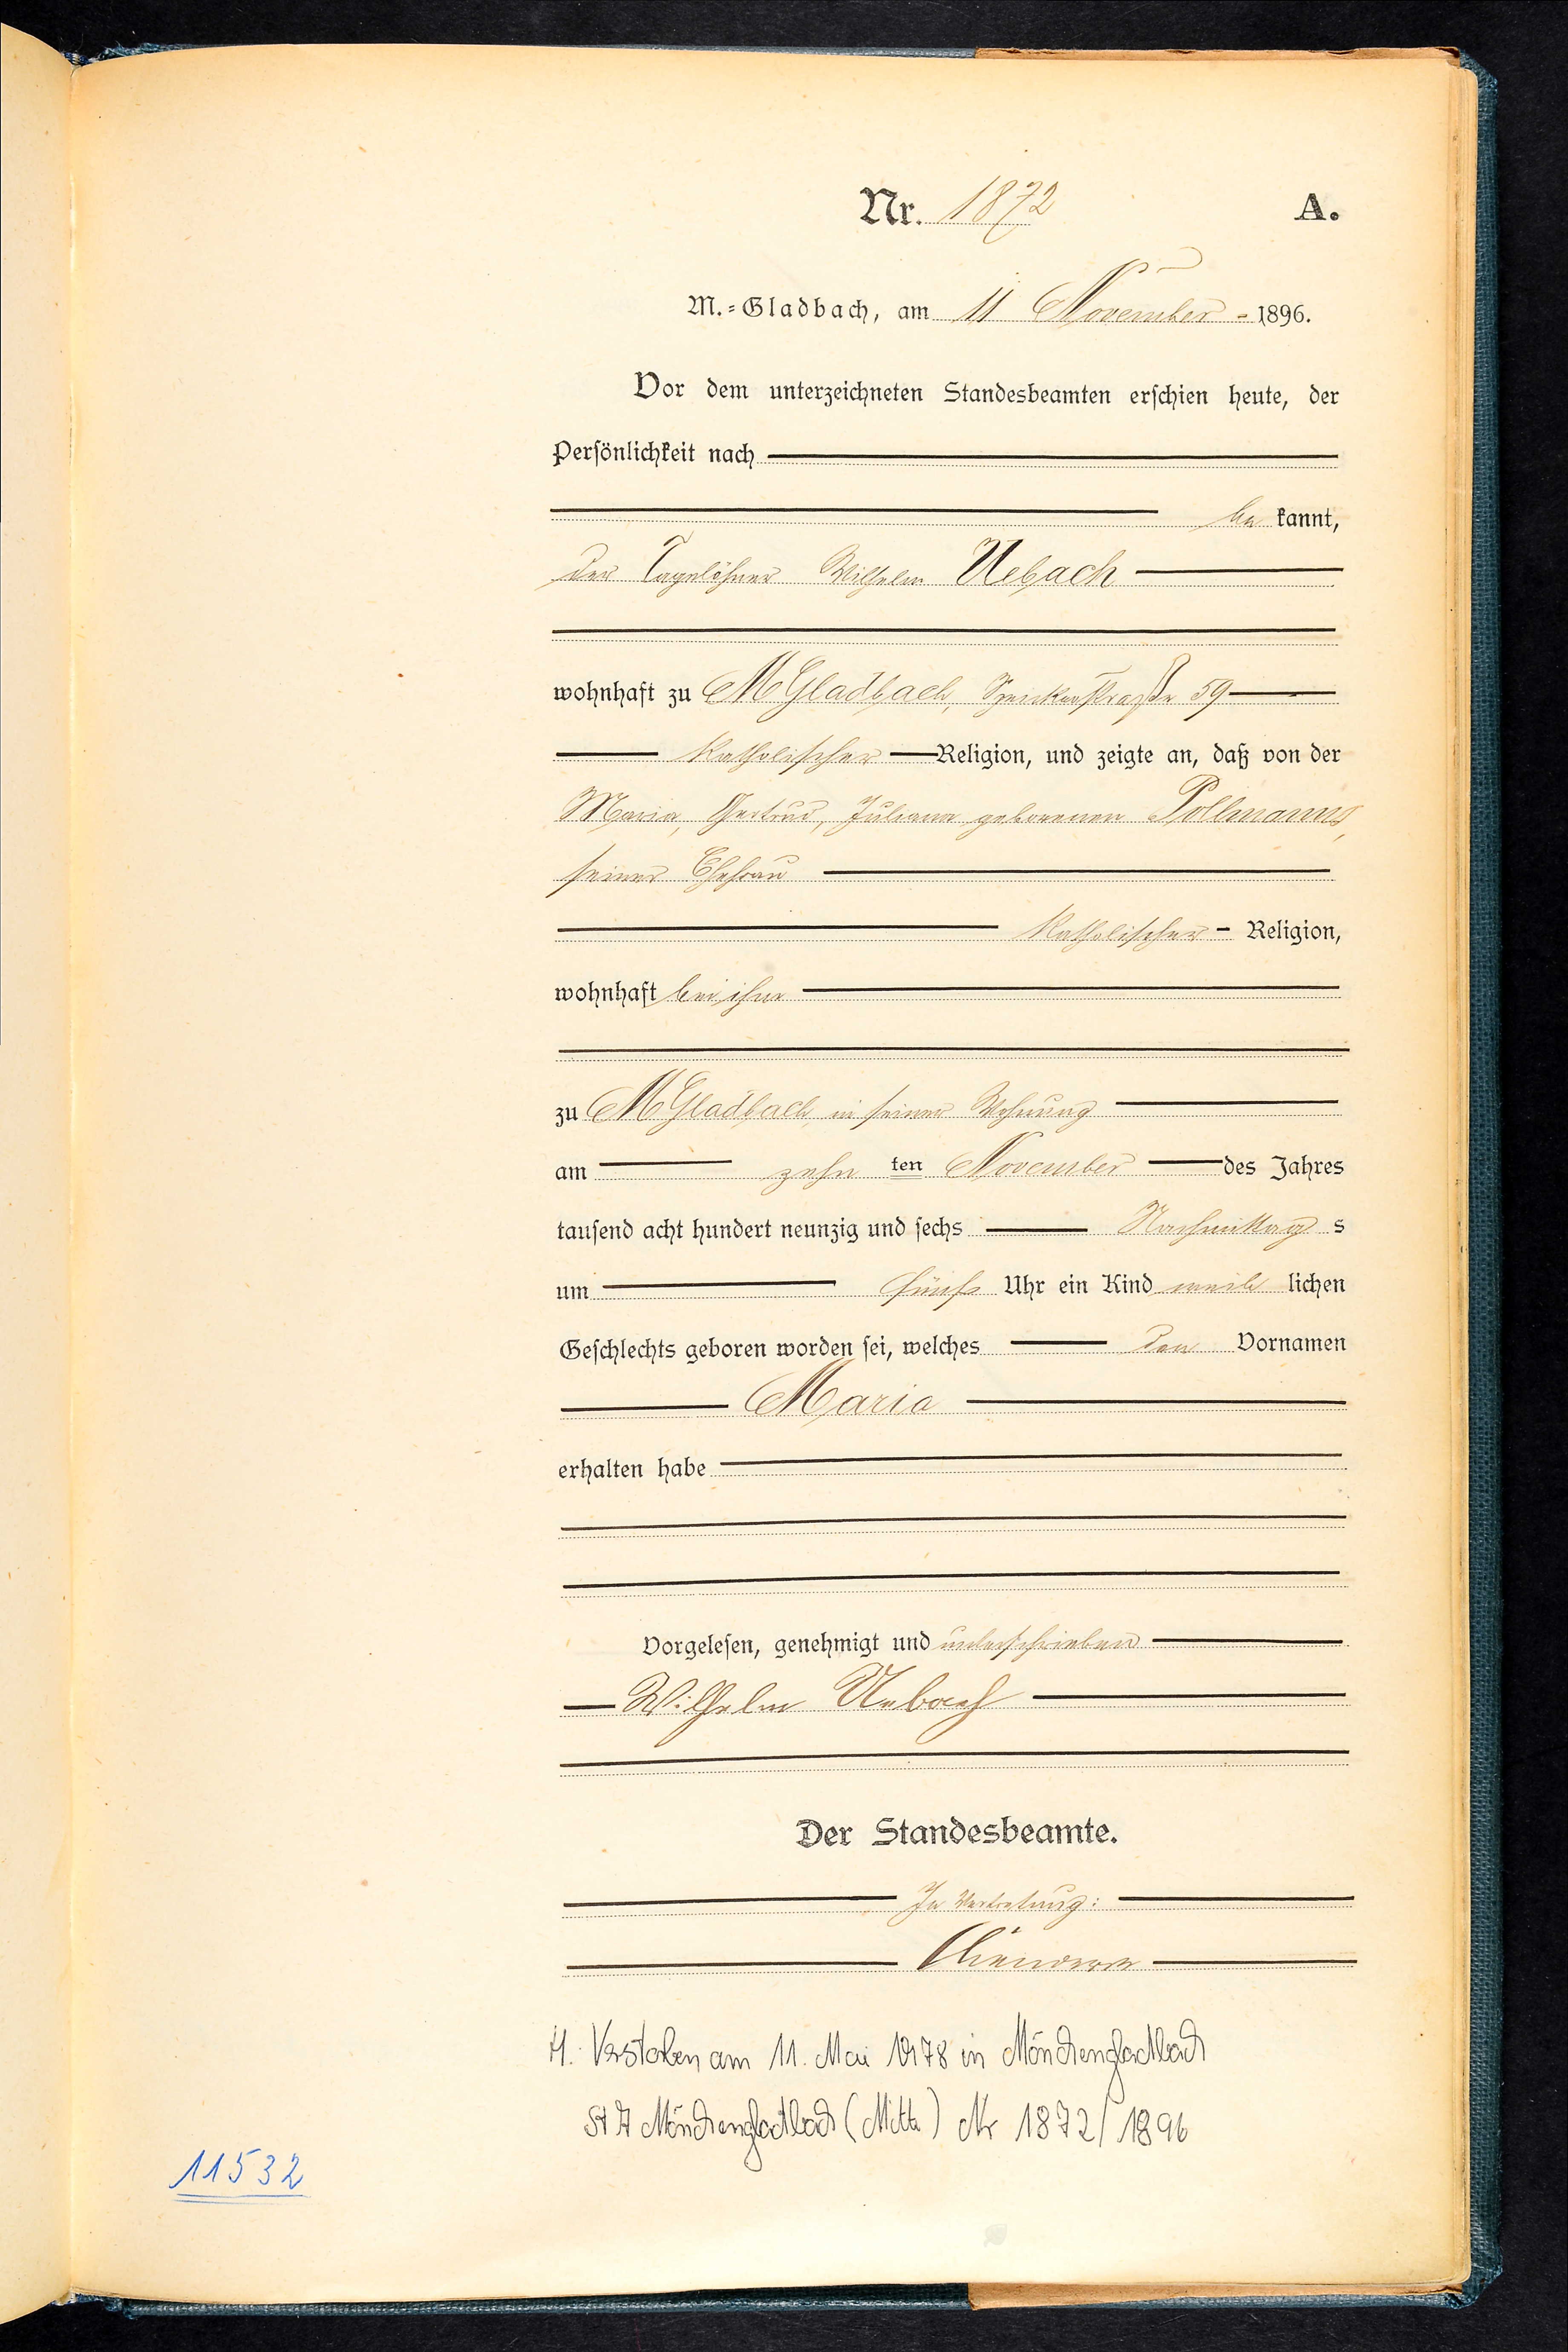 Nr. 1872 A.
M.-Gladbach, am 11 November 1896.
Vor dem unterzeichneten Standesbeamten erschien heute, der
Persönlichkeit nach
be kannt,
der Tagelöhner Wilhelm Uebach
wohnhaft zu M Gladbach, 59
katholischer Religion, und zeigte an, daß von der
Maria, Gertrud, Juliana geborenen Pollmanns,
seiner Ehefrau
katholischer Religion,
wohnhaft bei ihm
zu M Gladbach, in seiner Wohnung
am zehn ten November des Jahres
tausend acht hundert neunzig und sechs Nachmittag s
um fünf Uhr ein Kind weib lichen
Geschlechts geboren worden sei, welches den Vornamen
Maria
erhalten habe
Vorgelesen, genehmigt und unterschrieben
Wilhelm Uebach
Der Standesbeamte.
In Vertretung:
H. Verstorben am 11. Mai 1978 in Mönchengladbach
StA Mönchengladbach (Mitte) Nr 1872/1896
11532